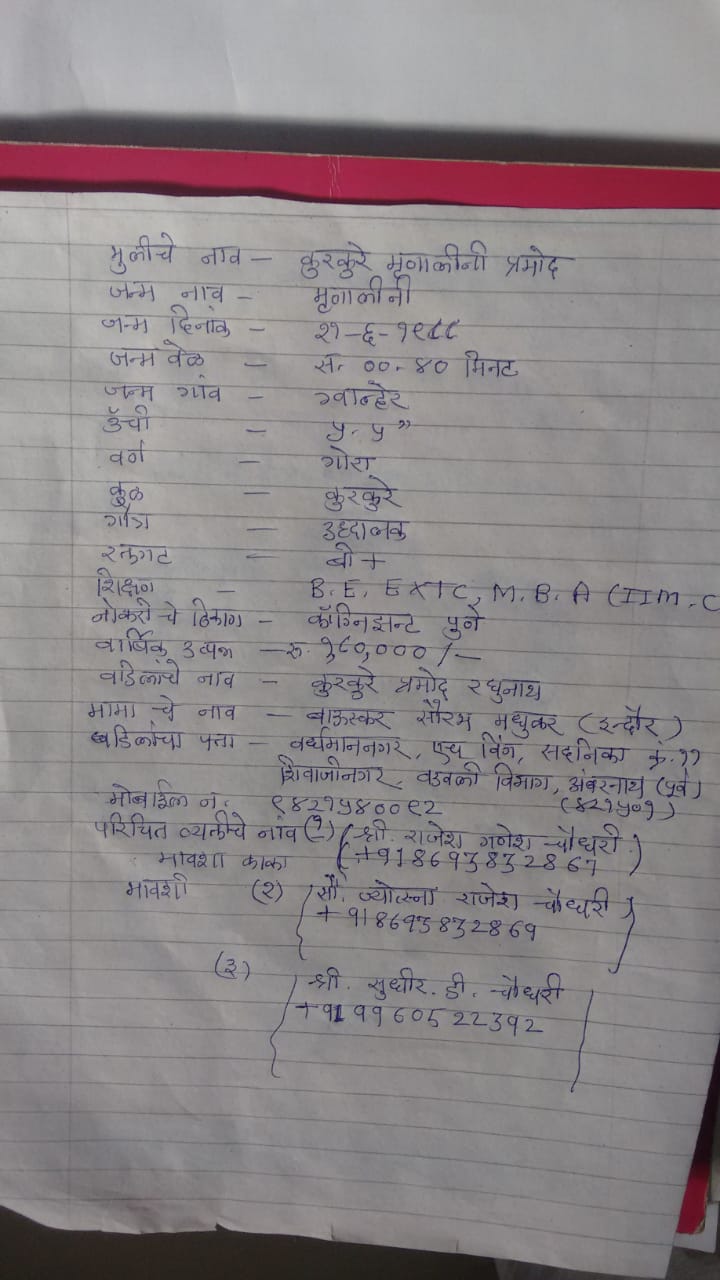 मुलीचे नाव – कुरकुरे मृणालीनी प्रमोद
जन्म नाव – मृणालीनी
जन्म दिनांक – २१-६-१९८८
जन्म वेळ – स. ००.४० मिनट
जन्म गांव – ग्वाल्हेर
उॅंची – ५.५"
वर्ण – गोरा
कुळ – कुरकुरे
गोत्र – उध्दालक
रक्तगट – बी +
शिक्षण – B.E. EXTC, M.B.A (IIM.C
नोकरी चे ठिकाण – कॉग्निझन्ट पुणे
वार्षिक उत्पन्न – रु. ,८०,०००/–
वडिलांचे नाव – कुरकुरे प्रमोद रघुनाथ
मामा चे नाव – बाऊस्कर सौरभ मधुकर (इन्दौर)
वडिलांचा पत्ता – वर्धमाननगर, एच विंग, सदनिका क्रं.११
शिवाजीनगर, वडवली विभाग, अंबरनाथ (पूर्व)
मोबाईल नं. ९८२१५४००९२ (४२१५०१)
परिचित व्यक्तीचे नांव (१) (श्री. राजेश गणेश चौधरी)
मावशा काका (+918693832867)
मावशी (२) (सौ. ज्योत्स्ना राजेश चौधरी)
+918693832869
(३) श्री. सुधीर. डी. चौधरी
+919960522392